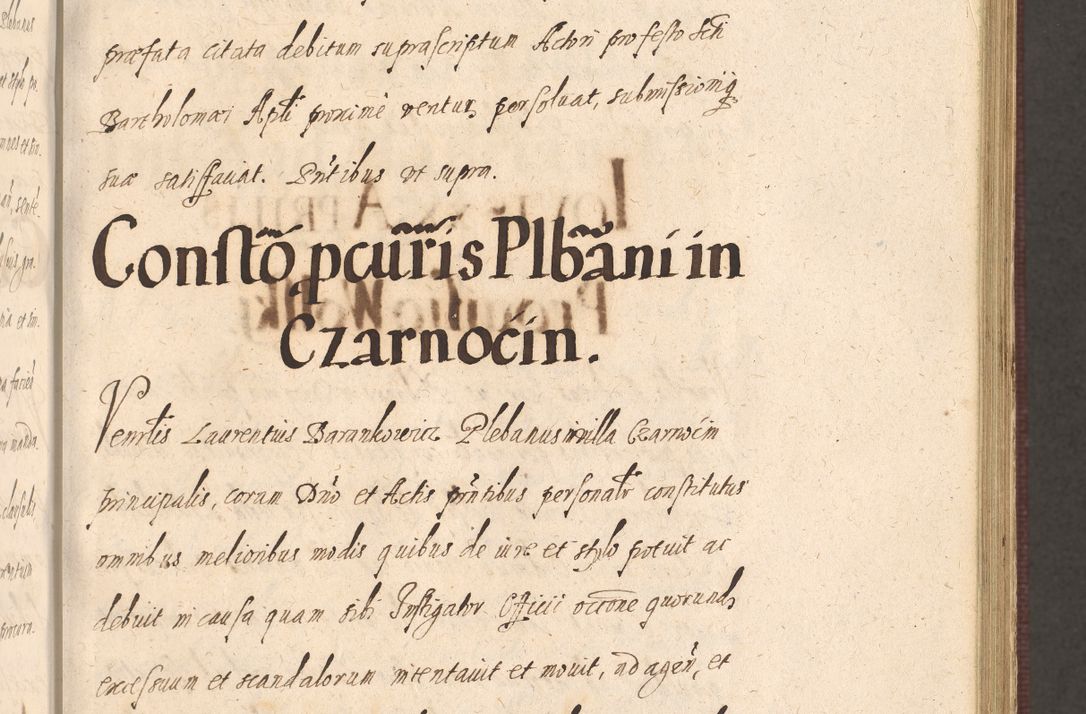 præfata citata debitum suprascriptum Actori pro festo Scti
Bartholomæi Apli proximè ventur, persoluat, submissioniq
suæ satisfaciat. Pntibus vt supra.
Constō pcurīs Plbāni in
Czarnocin.
Venrlis Laurentius Barankowicz Plebanus in villa Czarnocin
principalis, coram Dno et Actis pntibus personalr constitutus
omnibus melioribus modis quibus de iure et stylo potuit ac
debuit in causa quam sibi Instigator Officii occone quorund
excessuum et scandalorum intentauit et mouit, ad agen, et